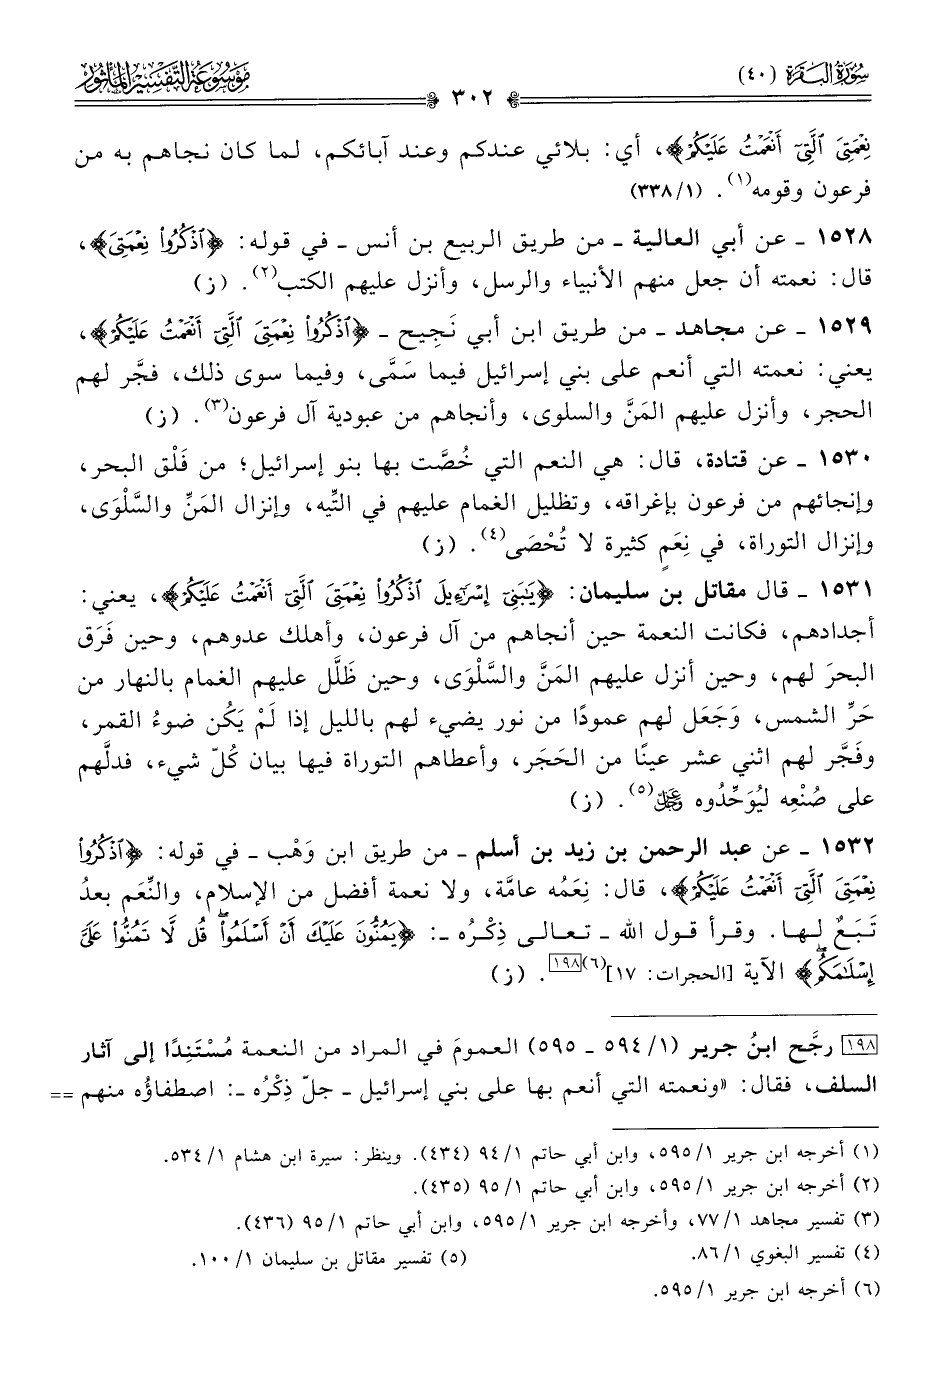 سُورَةُ البَقَرَة (٤٠)
٣٠٢
مَوْسُوعَةُ التَّفْسِيرِ المَأْثُور
نِعْمَتِىَ ٱلَّتِىٓ أَنْعَمْتُ عَلَيْكُمْ﴾، أي: بلائي عندكم وعند آبائكم، لما كان نجاهم به من
فرعون وقومه(١). (٣٣٨/١)
١٥٢٨ ـ عن أبي العالية ـ من طريق الربيع بن أنس ـ في قوله: ﴿ٱذْكُرُوا۟ نِعْمَتِىَ﴾،
قال: نعمته أن جعل منهم الأنبياء والرسل، وأنزل عليهم الكتب(٢). (ز)
١٥٢٩ ـ عن مجاهد ـ من طريق ابن أبي نَجِيح ـ ﴿ٱذْكُرُوا۟ نِعْمَتِىَ ٱلَّتِىٓ أَنْعَمْتُ عَلَيْكُمْ﴾،
يعني: نعمته التي أنعم على بني إسرائيل فيما سَمَّى، وفيما سوى ذلك، فجَّر لهم
الحجر، وأنزل عليهم المَنَّ والسلوى، وأنجاهم من عبودية آل فرعون(٣). (ز)
١٥٣٠ ـ عن قتادة، قال: هي النعم التي خُصَّت بها بنو إسرائيل؛ من فَلْق البحر،
وإنجائهم من فرعون بإغراقه، وتظليل الغمام عليهم في التِّيه، وإنزال المَنِّ والسَّلْوَى،
وإنزال التوراة، في نِعَمٍ كثيرة لا تُحْصَى(٤). (ز)
١٥٣١ ـ قال مقاتل بن سليمان: ﴿يَٰبَنِىٓ إِسْرَٰٓءِيلَ ٱذْكُرُوا۟ نِعْمَتِىَ ٱلَّتِىٓ أَنْعَمْتُ عَلَيْكُمْ﴾، يعني:
أجدادهم، فكانت النعمة حين أنجاهم من آل فرعون، وأهلك عدوهم، وحين فَرَق
البحرَ لهم، وحين أنزل عليهم المَنَّ والسَّلْوَى، وحين ظَلَّل عليهم الغمام بالنهار من
حَرِّ الشمس، وَجَعَل لهم عمودًا من نور يضيء لهم بالليل إذا لَمْ يَكُن ضوءُ القمر،
وفَجَّر لهم اثني عشر عينًا من الحَجَر، وأعطاهم التوراة فيها بيان كُلّ شيء، فدلَّهم
على صُنْعِه ليُوَحِّدُوه ﷿(٥). (ز)
١٥٣٢ ـ عن عبد الرحمن بن زيد بن أسلم ـ من طريق ابن وَهْب ـ في قوله: ﴿ٱذْكُرُوا۟
نِعْمَتِىَ ٱلَّتِىٓ أَنْعَمْتُ عَلَيْكُمْ﴾، قال: نِعَمُه عامَّة، ولا نعمة أفضل من الإسلام، والنِّعَم بعدُ
تَبَعٌ لها. وقرأ قول الله ـ تعالى ذِكْرُه ـ: ﴿يَمُنُّونَ عَلَيْكَ أَنْ أَسْلَمُوا۟ ۖ قُل لَّا تَمُنُّوا۟ عَلَىَّ
إِسْلَٰمَكُم ۖ﴾ الآية [الحجرات: ١٧](٦)[١٩٨]. (ز)
[١٩٨] رجَّح ابنُ جرير (١/ ٥٩٤ ـ ٥٩٥) العمومَ في المراد من النعمة مُسْتَنِدًا إلى آثار
السلف، فقال: «ونعمته التي أنعم بها على بني إسرائيل ـ جلّ ذِكْرُه ـ: اصطفاؤُه منهم ==
(١) أخرجه ابن جرير ١/ ٥٩٥، وابن أبي حاتم ١/ ٩٤ (٤٣٤). وينظر: سيرة ابن هشام ١/ ٥٣٤.
(٢) أخرجه ابن جرير ١/ ٥٩٥، وابن أبي حاتم ١/ ٩٥ (٤٣٥).
(٣) تفسير مجاهد ١/ ٧٧، وأخرجه ابن جرير ١/ ٥٩٥، وابن أبي حاتم ١/ ٩٥ (٤٣٦).
(٤) تفسير البغوي ١/ ٨٦. (٥) تفسير مقاتل بن سليمان ١/ ١٠٠.
(٦) أخرجه ابن جرير ١/ ٥٩٥.